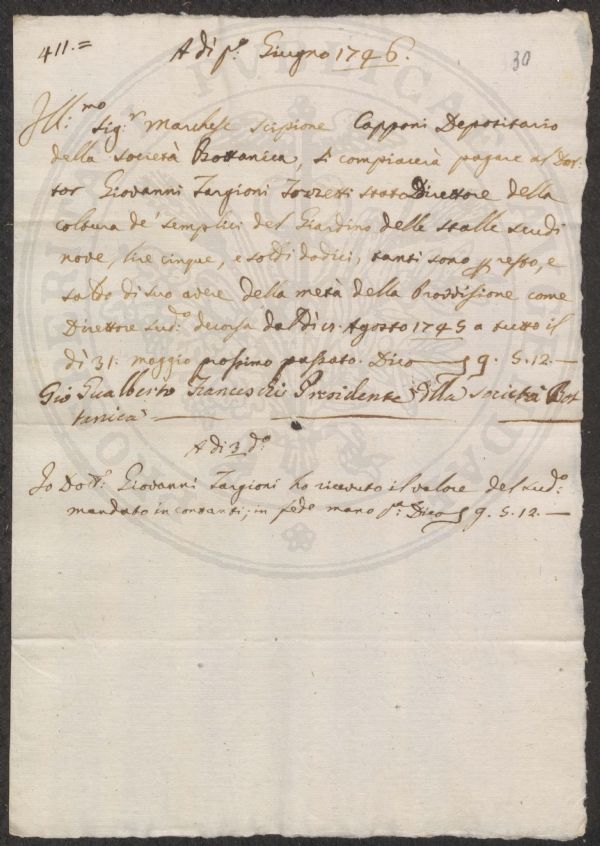 411.=
A dì p.º Giugno 1746.
30
Ill:mo
Sig:r Marchese Scipione Capponi Depositario
della Società Bottanica, si compiacerà pagare al Dot:
tor Giovanni Targioni Tozzetti stato Direttore della
coltura de' semplici del Giardino delle stalle scudi
nove, lire cinque, e soldi dodici, tanti sono p resto, e
saldo di suo avere della metà della Provvisione come
Direttore sud:º decorsa dal dì Agosto 1745 a tutto il
dì 31: maggio prossimo passato. Dico 9. 5. 12.—
Gio Gualberto Franceschi Presidente della Società Bot
tanica
A dì 3 dº:
Io Dott: Giovanni Targioni ho ricevuto il valore del sud:º
mandato in contanti; in fede mano pa: Dico 9. 5. 12.—